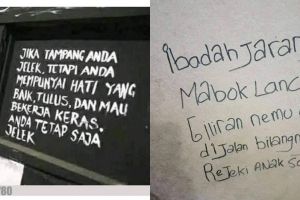 JIKA TAMPANG ANDA
JELEK, TETAPI ANDA
MEMPUNYAI HATI YANG
BAIK, TULUS, DAN MAU
BEKERJA KERAS.
ANDA TETAP SAJA
JELEK
/80
Ibadah Jaran
Mabok Lanc
Giliran nemu
diJalan bilangn
ReJeki ANAK So